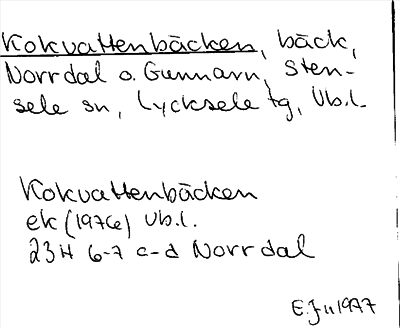 Kokvattenbäcken, bäck,
Norrdal o. Gunnarn, Sten-
sele sn, Lycksele tg, Vb.l.
Kokvattenbäcken
ek (1976) Vb.l.
23H 6-7 c-d Norrdal
1977